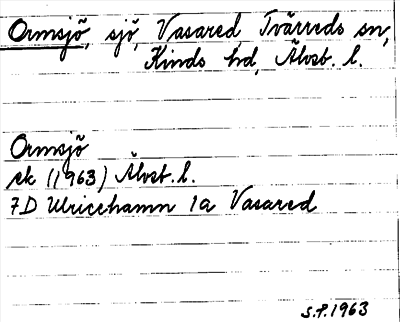 Ormsjö, sjö, Vasared, Tvärreds sn,
Kinds hd, Älvsb. l.
Ormsjö
ek (1963) Älvsb. l.
7D Ulricehamn 1a Vasared
S.P. 1963